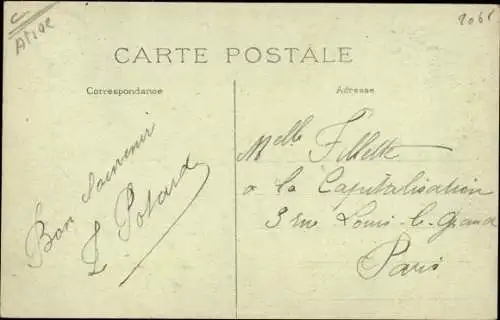 C.
Ariège
9065
CARTE POSTALE
Correspondance
Adresse
Bon Souvenir
L Potard
Melle Fillette
à la Capitalisation
3 rue Louis-le-Grand
Paris